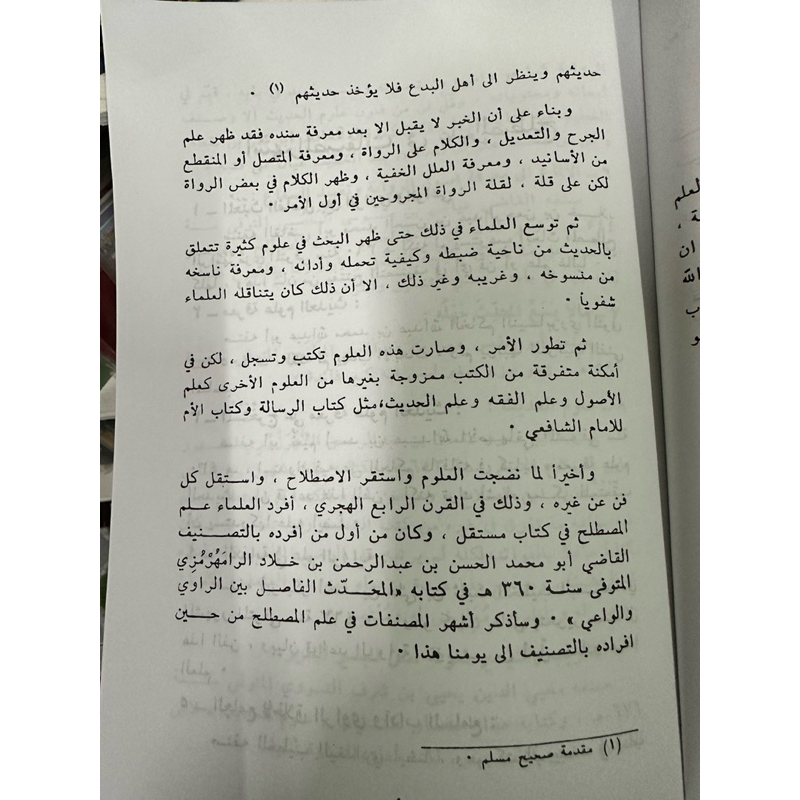 حديثهم وينظر الى أهل البدع فلا يؤخذ حديثهم (١) ٠
وبناء على أن الخبر لا يقبل الا بعد معرفة سنده فقد ظهر علم
الجرح والتعديل ، والكلام على الرواة ، ومعرفة المتصل أو المنقطع
من الأسانيد ، ومعرفة العلل الخفية ، وظهر الكلام في بعض الرواة
لكن على قلة ، لقلة الرواة المجروحين في أول الأمر ٠
ثم توسع العلماء في ذلك حتى ظهر البحث في علوم كثيرة تتعلق
بالحديث من ناحية ضبطه وكيفية تحمله وأدائه ، ومعرفة ناسخه
من منسوخه ، وغريبه وغير ذلك ، الا أن ذلك كان يتناقله العلماء
شفوياً ٠
ثم تطور الأمر ، وصارت هذه العلوم تكتب وتسجل ، لكن في
أمكنة متفرقة من الكتب ممزوجة بغيرها من العلوم الأخرى كعلم
الأصول وعلم الفقه وعلم الحديث،مثل كتاب الرسالة وكتاب الأم
للامام الشافعي ٠
وأخيراً لما نضجت العلوم واستقر الاصطلاح ، واستقل كل
فن عن غيره ، وذلك في القرن الرابع الهجري ، أفرد العلماء علم
المصطلح في كتاب مستقل ، وكان من أول من أفرده بالتصنيف
القاضي أبو محمد الحسن بن عبدالرحمن بن خلاد الرامَهُرْمُزِي
المتوفى سنة ٣٦٠ هـ في كتابه «المحَدّث الفاصل بين الراوي
والواعي» ٠ وسأذكر أشهر المصنفات في علم المصطلح من حين
افراده بالتصنيف الى يومنا هذا ٠
(١) مقدمة صحيح مسلم ٠